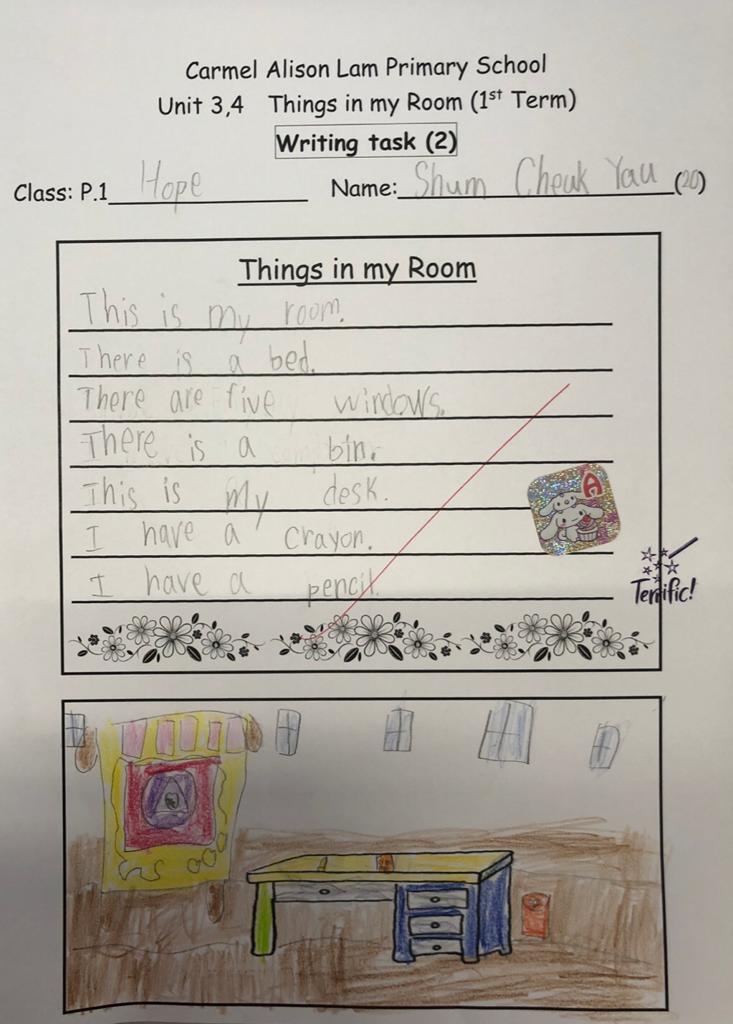 Carmel Alison Lam Primary School
Unit 3,4 Things in my Room (1st Term)
Writing task (2)
Class: P.1 Hope Name: Shum Cheuk Yau (20)
Things in my Room
This is my room.
There is a bed.
There are five windows.
There is a bin.
This is my desk.
I have a crayon.
I have a pencil.
A
Terrific!